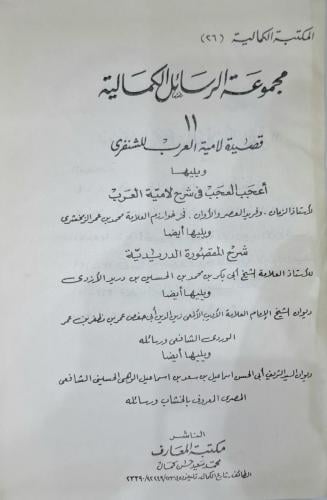 المكتبة الكمالية (٢٦)
مجموعة الرسائل الكمالية
١١
قصيدة لامية العرب للشنفرى
ويليها
أعجب العجب في شرح لامية العرب
لأستاذ الزمان، وفريد العصر والأوان، فخر خوارزم العلامة محمد بن عمر الزمخشرى
ويليها أيضا
شرح المقصورة الدريدية
للأستاذ العلامة الشيخ أبي بكر بن محمد بن الحسين بن دريد الأزدى
ويليها أيضا
ديوان الشيخ الإمام العلامة الأديب الألمعى زين الدين أبي حفص عمر بن مظفر بن عمر
الوردى الشافعى ورسائله
ويليها أيضا
ديوان السيد الشريف أبي الحسن اسماعيل بن سعد بن اسماعيل الوهبى الحسينى الشافعى
المصرى المعروف بالخشاب ورسائله
الناشر
مكتبة المعارف
محمد سعيد حسن كمال
الطائف. شارع الكمال، تليفون